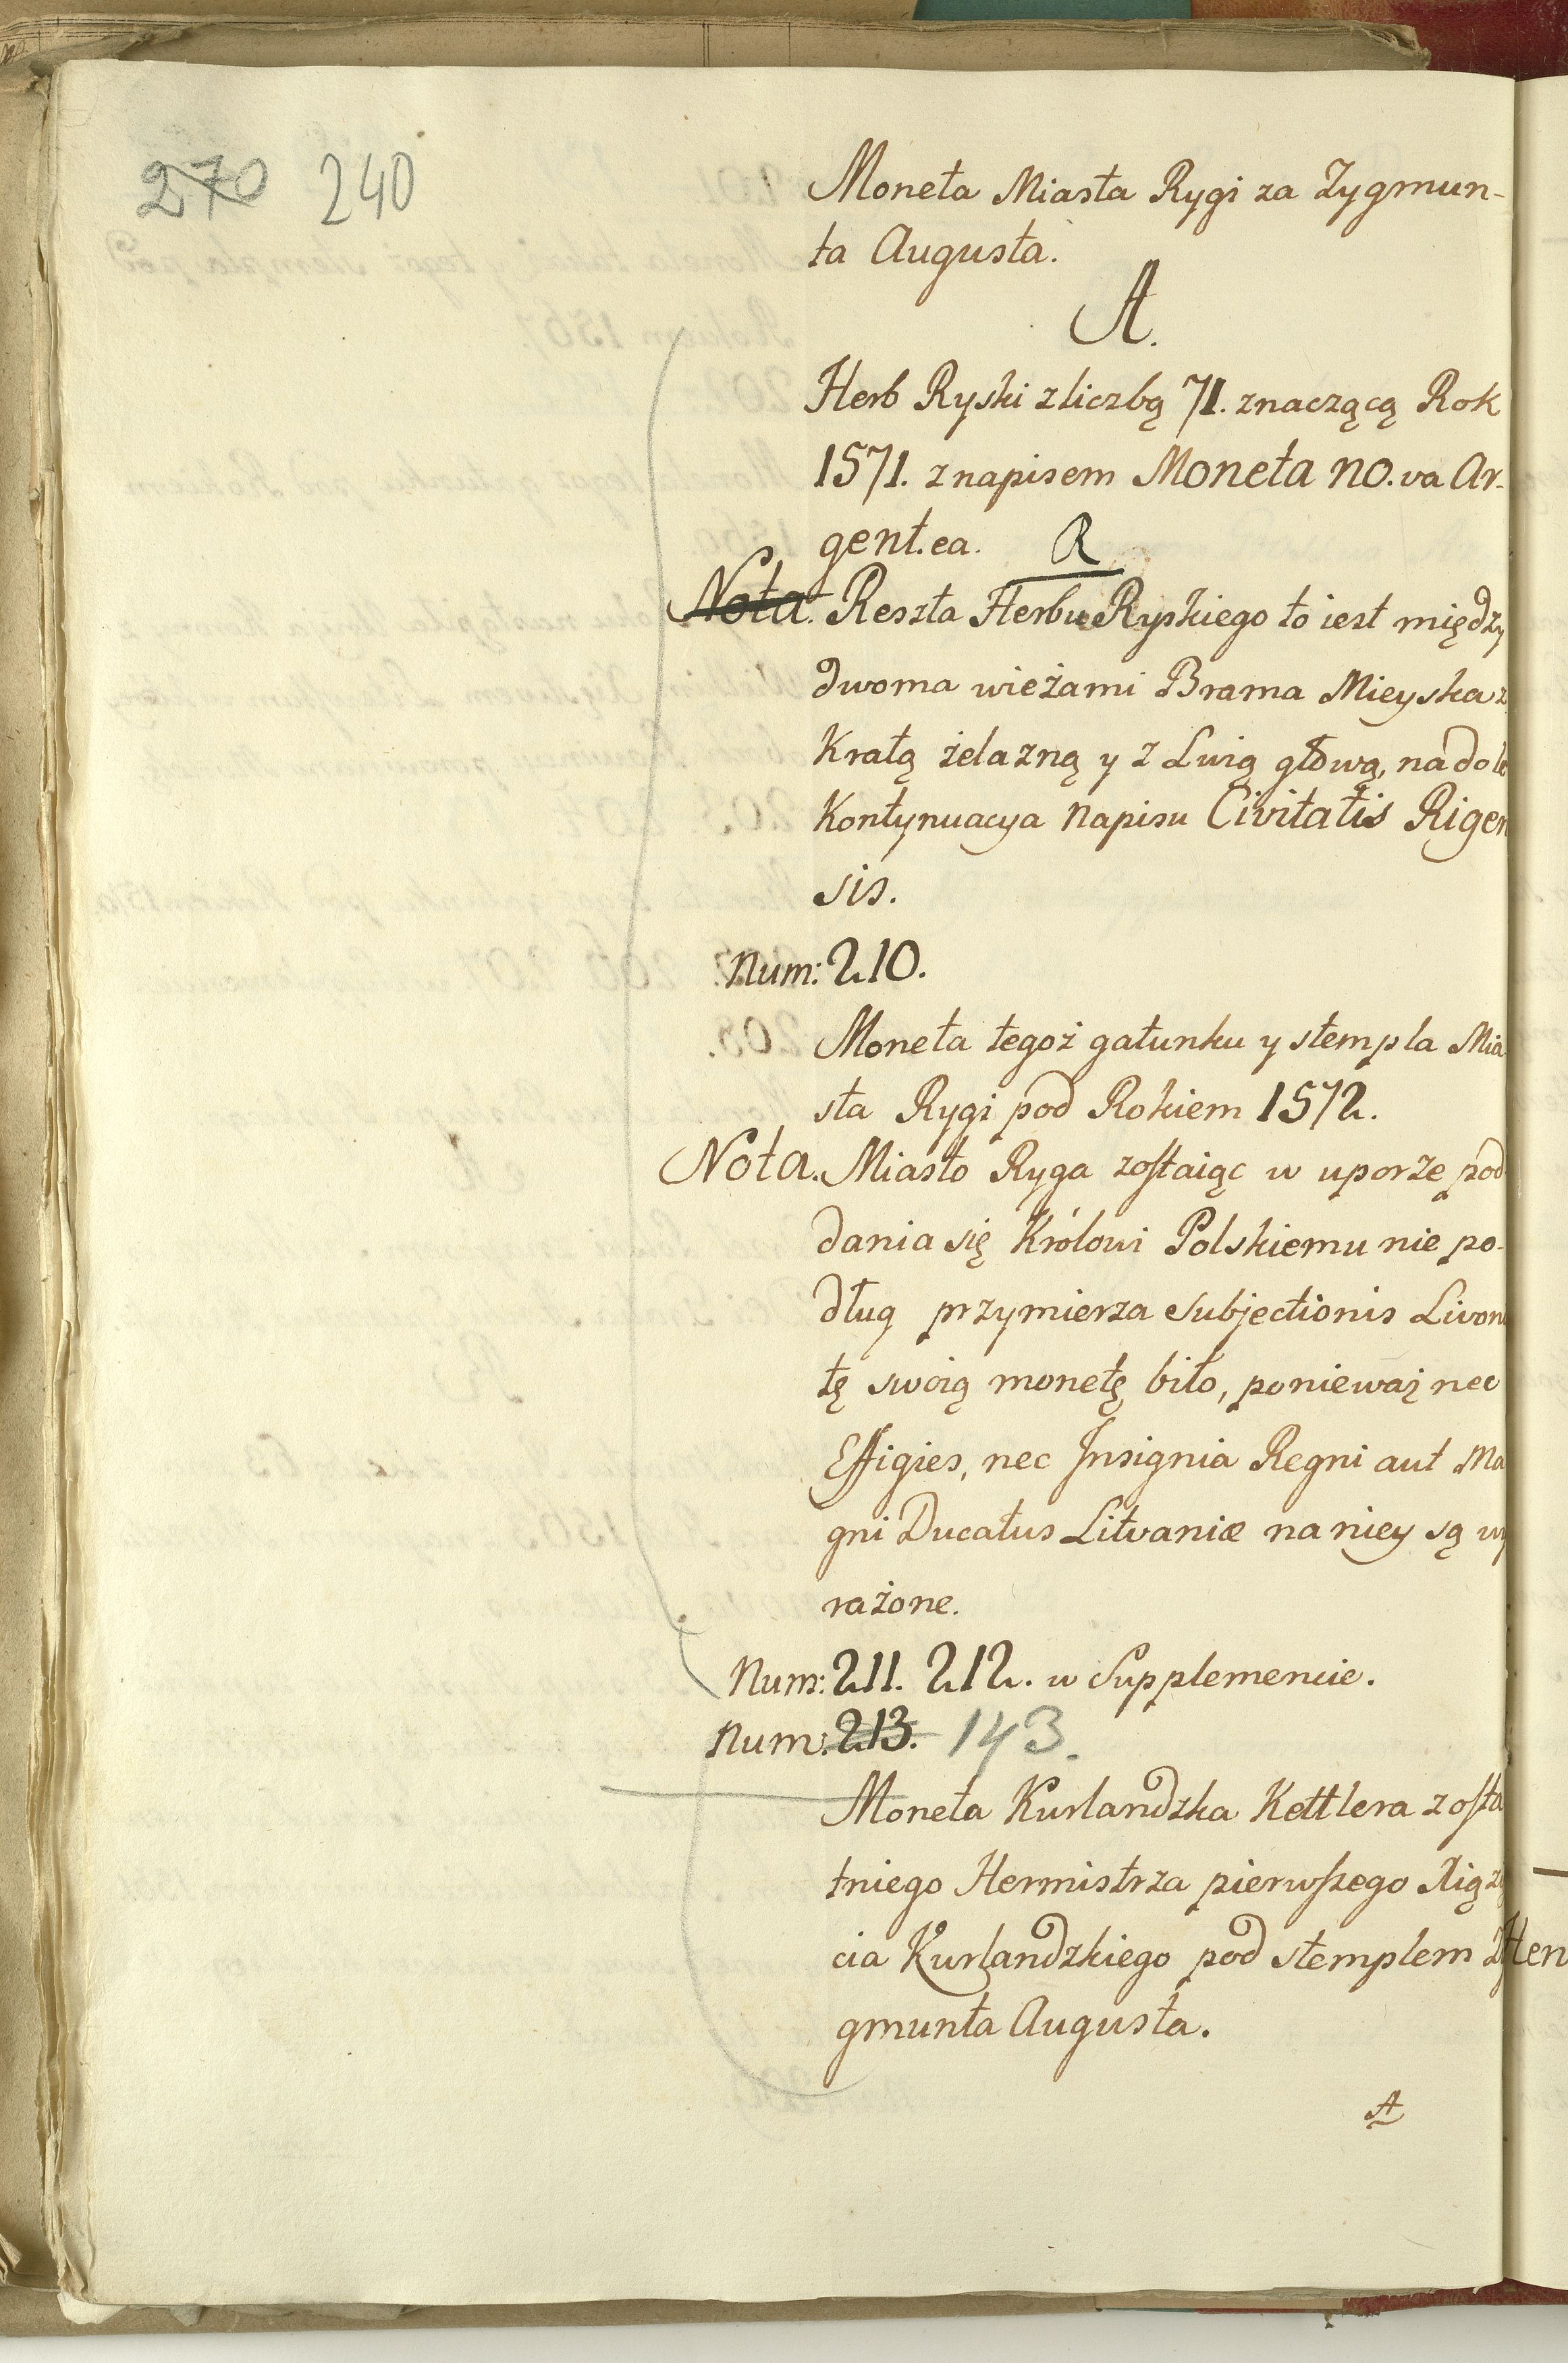 270 240
Moneta Miasta Rygi za Zygmun-
ta Augusta.
A.
Herb Ryski z liczbą 71. znaczącą Rok
1571. z napisem Moneta no.va Ar-
gent.ea. R
Nota. Reszta Herbu Ryskiego to iest między
dwoma wieżami Brama Mieyska z
Kratą żelazną y z Lwią głową, na dole
Kontynuacya napisu Civitatis Rigen
sis.
Num: 210.
Moneta tegoż gatunku y stempla Mia
sta Rygi pod Rokiem 1572.
Nota. Miasto Ryga zostaiąc w uporze pod
dania się Królowi Polskiemu nie po-
dług przymierza Subjectionis Livon
tę swoią monetę biło, poniewaz nec
Effigies, nec Insignia Regni aut Ma
gni Ducatus Litvaniæ na niey są wy
rażone.
Num: 211. 212. w Supplemencie.
Num: 213. 143.
Moneta Kurlandzka Kettlera z osta
tniego Hermistrza pierwszego Xiąż
cia Kurlandzkiego pod stemplem Zy
gmunta Augusta.
A